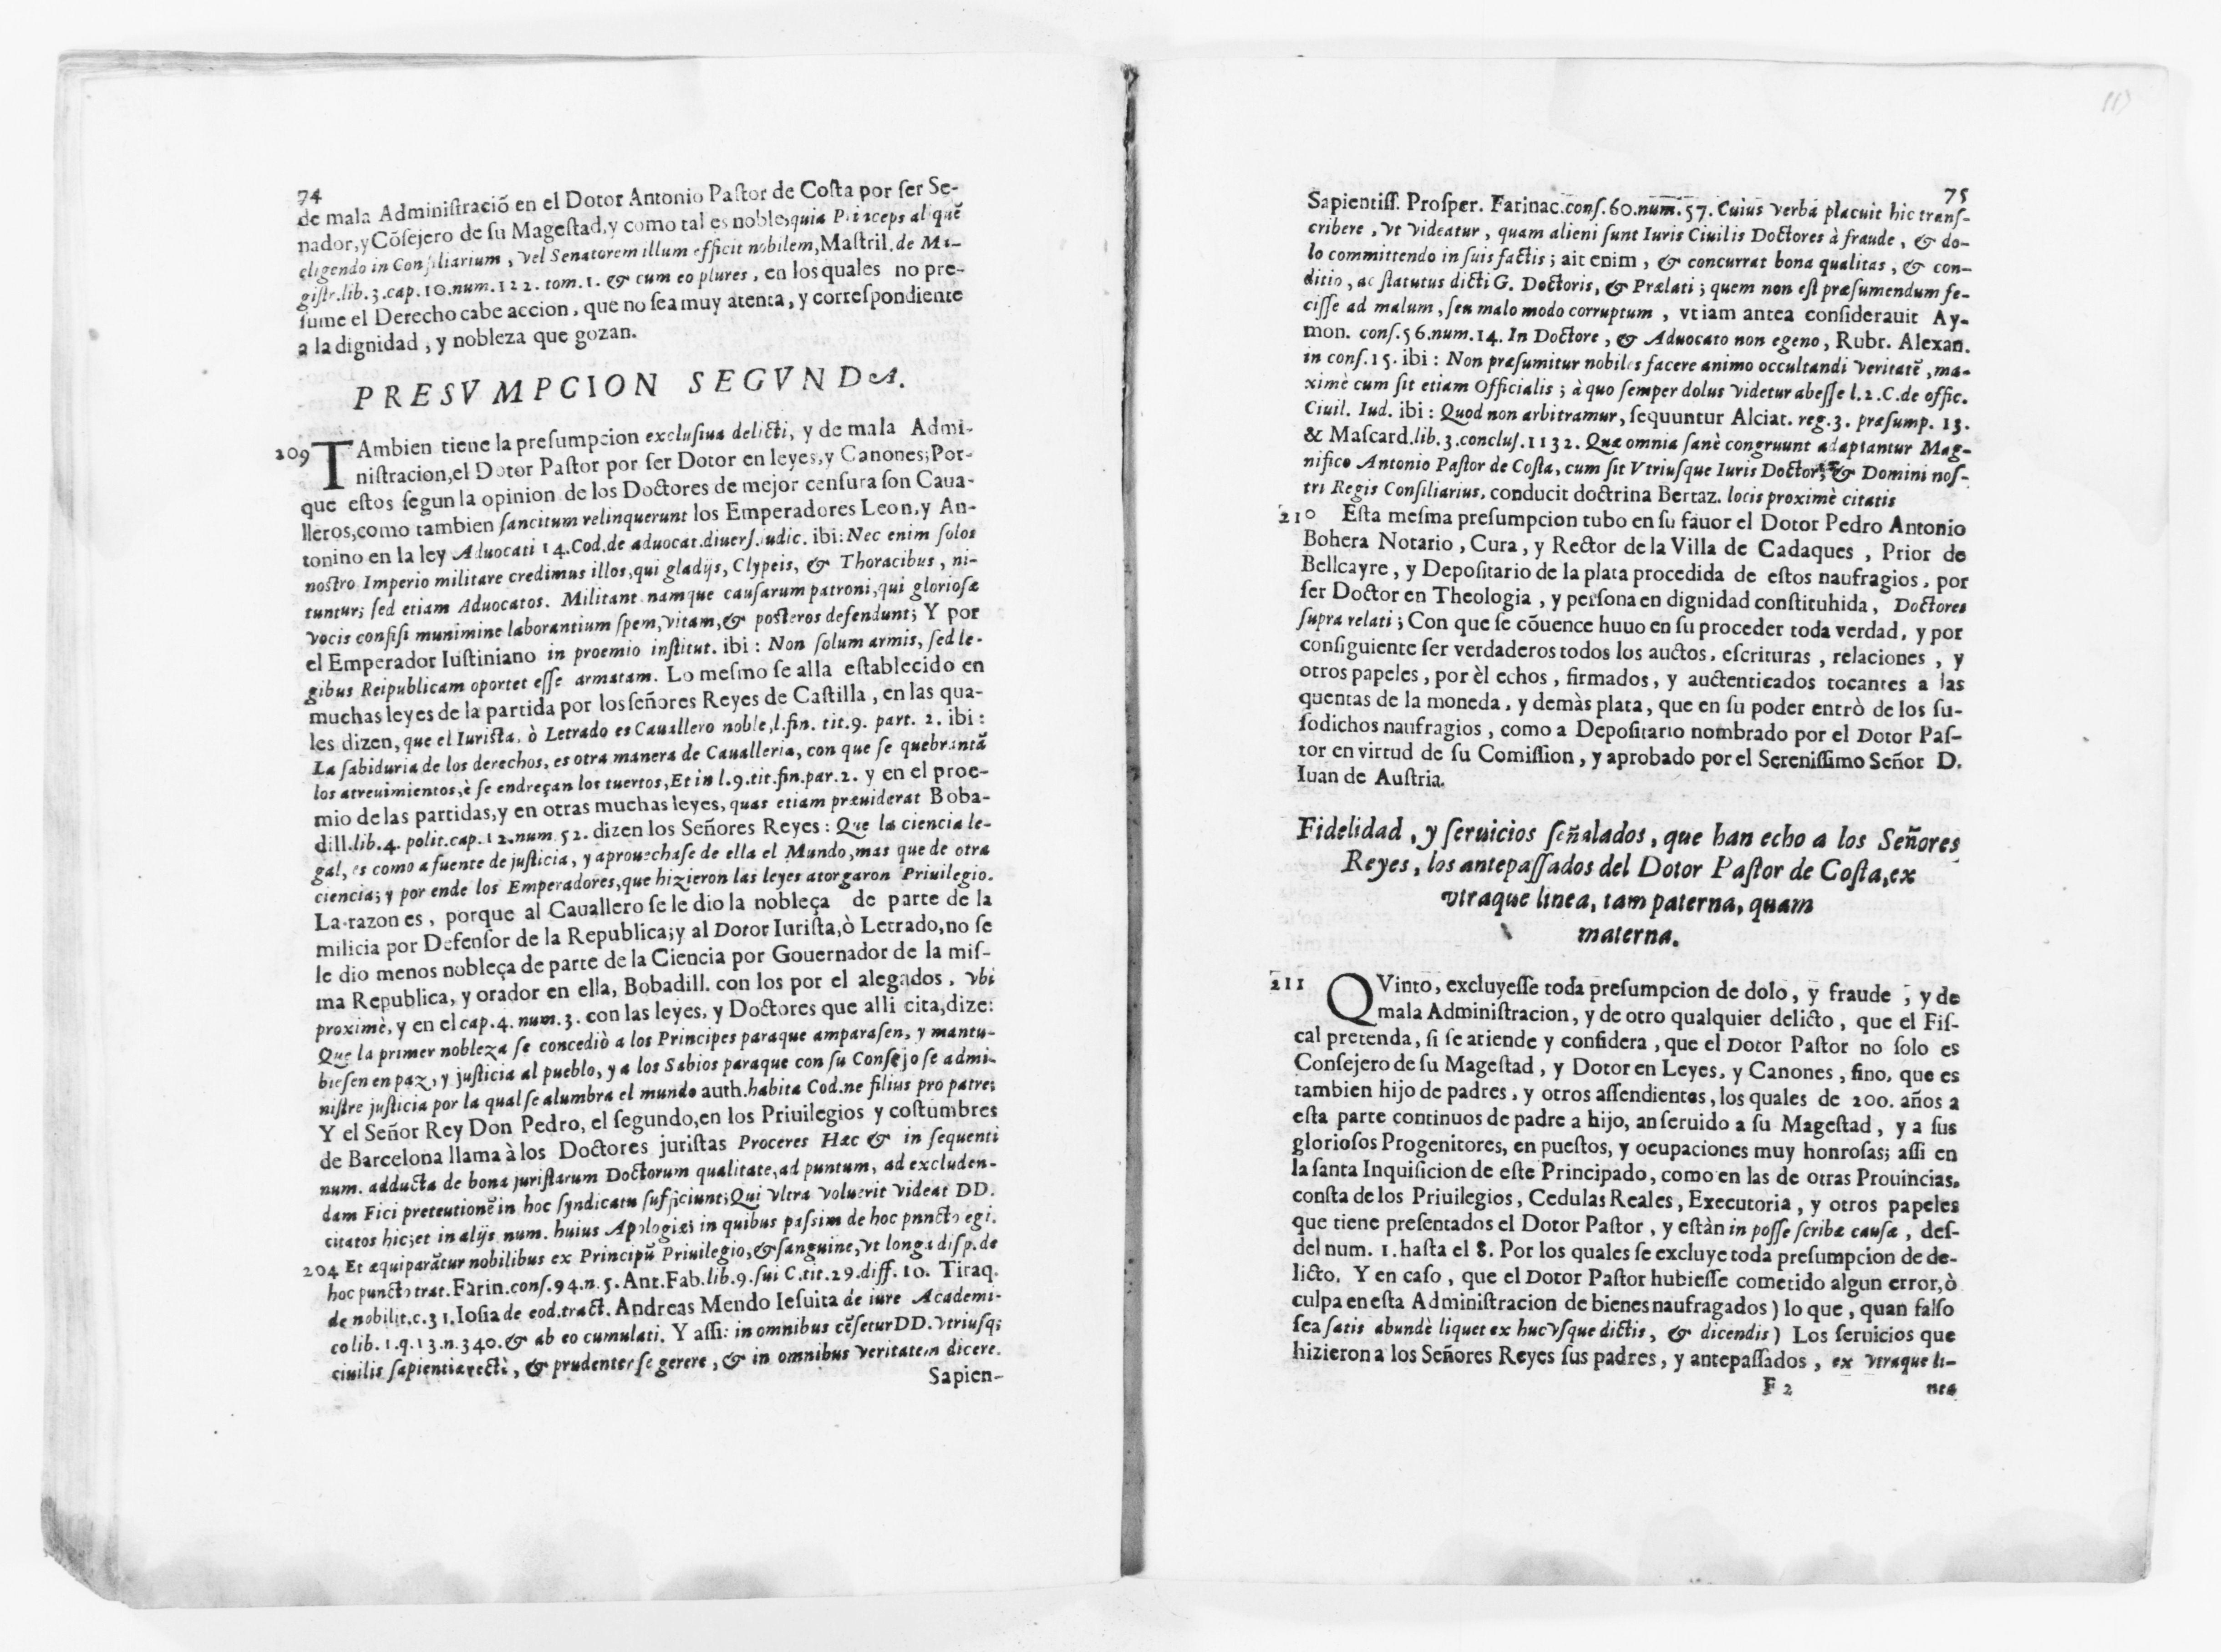 74
de mala Administraciõ en el Dotor Antonio Pastor de Costa por ser Se-
nador, y Cõsejero de su Magestad, y como tal es noble, quia Princeps aliquẽ
eligendo in Consiliarium, vel Senatorem illum efficit nobilem, Mastril. de Ma-
gistr. lib. 3. cap. 10. num. 122. tom. 1. & cum eo plures, en los quales no pre-
sume el Derecho cabe accion, que no sea muy atenta, y correspondiente
a la dignidad, y nobleza que gozan.
PRESVMPCION SEGVNDA.
209 TAmbien tiene la presumpcion exclusiua delicti, y de mala Admi-
nistracion, el Dotor Pastor por ser Dotor en leyes, y Canones; Por-
que estos segun la opinion de los Doctores de mejor censura son Caua-
lleros, como tambien sancitum relinquerunt los Emperadores Leon, y An-
tonino en la ley Aduocati 14. Cod. de aduocat. diuers. iudic. ibi: Nec enim solos
nostro Imperio militare credimus illos, qui gladijs, Clypeis, & Thoracibus, ni-
tuntur; sed etiam Aduocatos. Militant namque causarum patroni, qui gloriosæ
vocis confisi munimine laborantium spem, vitam, & posteros defendunt; Y por
el Emperador Iustiniano in proemio institut. ibi: Non solum armis, sed le-
gibus Reipublicam oportet esse armatam. Lo mesmo se alla establecido en
muchas leyes de la partida por los señores Reyes de Castilla, en las qua-
les dizen, que el Iurista, ò Letrado es Cauallero noble, l. fin. tit. 9. part. 2. ibi:
La sabiduria de los derechos, es otra manera de Caualleria, con que se quebrantã
los atreuimientos, è se endreçan los tuertos, Et in l. 9. tit. fin. par. 2. y en el proe-
mio de las partidas, y en otras muchas leyes, quas etiam præuiderat Boba-
dill. lib. 4. polit. cap. 12. num. 52. dizen los Señores Reyes: Que la ciencia le-
gal, es como a fuente de justicia, y aprouechase de ella el Mundo, mas que de otra
ciencia; y por ende los Emperadores, que hizieron las leyes atorgaron Priuilegio.
La razon es, porque al Cauallero se le dio la nobleça de parte de la
milicia por Defensor de la Republica; y al Dotor Iurista, ò Letrado, no se
le dio menos nobleça de parte de la Ciencia por Gouernador de la mis-
ma Republica, y orador en ella, Bobadill. con los por el alegados, vbi
proximè, y en el cap. 4. num. 3. con las leyes, y Doctores que alli cita, dize:
Que la primer nobleza se concediò a los Principes paraque amparasen, y mantu-
biesen en paz, y justicia al pueblo, y a los Sabios paraque con su Consejo se admi-
nistre justicia por la qual se alumbra el mundo auth. habita Cod. ne filius pro patre;
Y el Señor Rey Don Pedro, el segundo, en los Priuilegios y costumbres
de Barcelona llama à los Doctores juristas Proceres Hæc & in sequenti
num. adducta de bona juristarum Doctorum qualitate, ad puntum, ad excluden-
dam Fici pretentionẽ in hoc syndicatu sufficiunt; Qui vltra voluerit videat DD.
citatos hic; et in alijs num. huius Apologiæ; in quibus passim de hoc puncto egi.
204 Et æquiparãtur nobilibus ex Principũ Priuilegio, & sanguine, vt longa disp. de
hoc puncto trat. Farin. cons. 94. n. 5. Ant. Fab. lib. 9. sui C. tit. 29. diff. 10. Tiraq.
de nobilit. c. 31. Iosia de eod. tract. Andreas Mendo Iesuita de iure Academi-
co lib. 1. q. 13. n. 340. & ab eo cumulati. Y assi: in omnibus cẽsetur DD. vtriusq;
ciuilis sapientia rectè, & prudenter se gerere, & in omnibus veritatem dicere.
Sapien-
75
Sapientiss. Prosper. Farinac. cons. 60. num. 57. Cuius verba placuit hic trans-
cribere, vt videatur, quam alieni sunt Iuris Ciuilis Doctores à fraude, & do-
lo committendo in suis factis; ait enim, & concurrat bona qualitas, & con-
ditio, ac statutus dicti G. Doctoris, & Prælati; quem non est præsumendum fe-
cisse ad malum, seu malo modo corruptum, vt iam antea considerauit Ay-
mon. cons. 56. num. 14. In Doctore, & Aduocato non egeno, Rubr. Alexan.
in cons. 15. ibi: Non præsumitur nobiles facere animo occultandi veritatẽ, ma-
ximè cum sit etiam Officialis; à quo semper dolus videtur abesse l. 2. C. de offic.
Ciuil. Iud. ibi: Quod non arbitramur, sequuntur Alciat. reg. 3. præsump. 13.
& Mascard. lib. 3. conclus. 1132. Quæ omnia sanè congruunt adaptantur Mag-
nifico Antonio Pastor de Costa, cum sit Vtriusque Iuris Doctor, & Domini nos-
tri Regis Consiliarius, conducit doctrina Bertaz. locis proximè citatis
210 Esta mesma presumpcion tubo en su fauor el Dotor Pedro Antonio
Bohera Notario, Cura, y Rector de la Villa de Cadaques, Prior de
Bellcayre, y Depositario de la plata procedida de estos naufragios, por
ser Doctor en Theologia, y persona en dignidad constituhida, Doctores
supra relati; Con que se cõuence huuo en su proceder toda verdad, y por
consiguiente ser verdaderos todos los auctos, escrituras, relaciones, y
otros papeles, por èl echos, firmados, y auctenticados tocantes a las
quentas de la moneda, y demàs plata, que en su poder entrò de los su-
sodichos naufragios, como a Depositario nombrado por el Dotor Pas-
tor en virtud de su Comission, y aprobado por el Serenissimo Señor D.
Iuan de Austria.
Fidelidad, y seruicios señalados, que han echo a los Señores
Reyes, los antepassados del Dotor Pastor de Costa, ex
vtraque linea, tam paterna, quam
materna.
211 QVinto, excluyesse toda presumpcion de dolo, y fraude, y de
mala Administracion, y de otro qualquier delicto, que el Fis-
cal pretenda, si se atiende y confidera, que el Dotor Pastor no solo es
Consejero de su Magestad, y Dotor en Leyes, y Canones, sino, que es
tambien hijo de padres, y otros assendientes, los quales de 200. años a
esta parte continuos de padre a hijo, an seruido a su Magestad, y a sus
gloriosos Progenitores, en puestos, y ocupaciones muy honrosas; assi en
la santa Inquisicion de este Principado, como en las de otras Prouincias,
consta de los Priuilegios, Cedulas Reales, Executoria, y otros papeles
que tiene presentados el Dotor Pastor, y estàn in posse scribæ causæ, des-
del num. 1. hasta el 8. Por los quales se excluye toda presumpcion de de-
licto. Y en caso, que el Dotor Pastor hubiesse cometido algun error, ò
culpa en esta Administracion de bienes naufragados) lo que, quan falso
sea satis abundè liquet ex hucvsque dictis, & dicendis) Los seruicios que
hizieron a los Señores Reyes sus padres, y antepassados, ex vtraque li-
F 2 nea